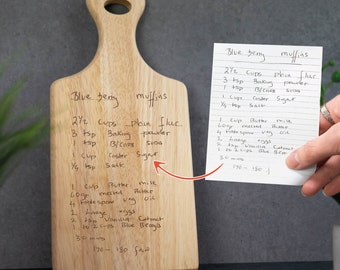 Blue Berry muffins
2½ cups plain flac
3 tsp Baking powder
1 tsp B/carb soda
1 cup Caster Sugar
½ tsp Salt
1 cup Butter milk
melted Butter
4 tablespoon veg oil
2 large eggs
1 tsp Vanilla Extract
2 cups Blue Berrys
30 mins
170 - 180
Blue Berry muffins
2½ cups plain flac
3 tsp Baking powder
1 tsp B/carb soda
1 cup Caster Sugar
½ tsp Salt
1 cup Butter milk
melted Butter
veg oil
2 large eggs
Vanilla Extract
Blue
30 mins
170 - 180